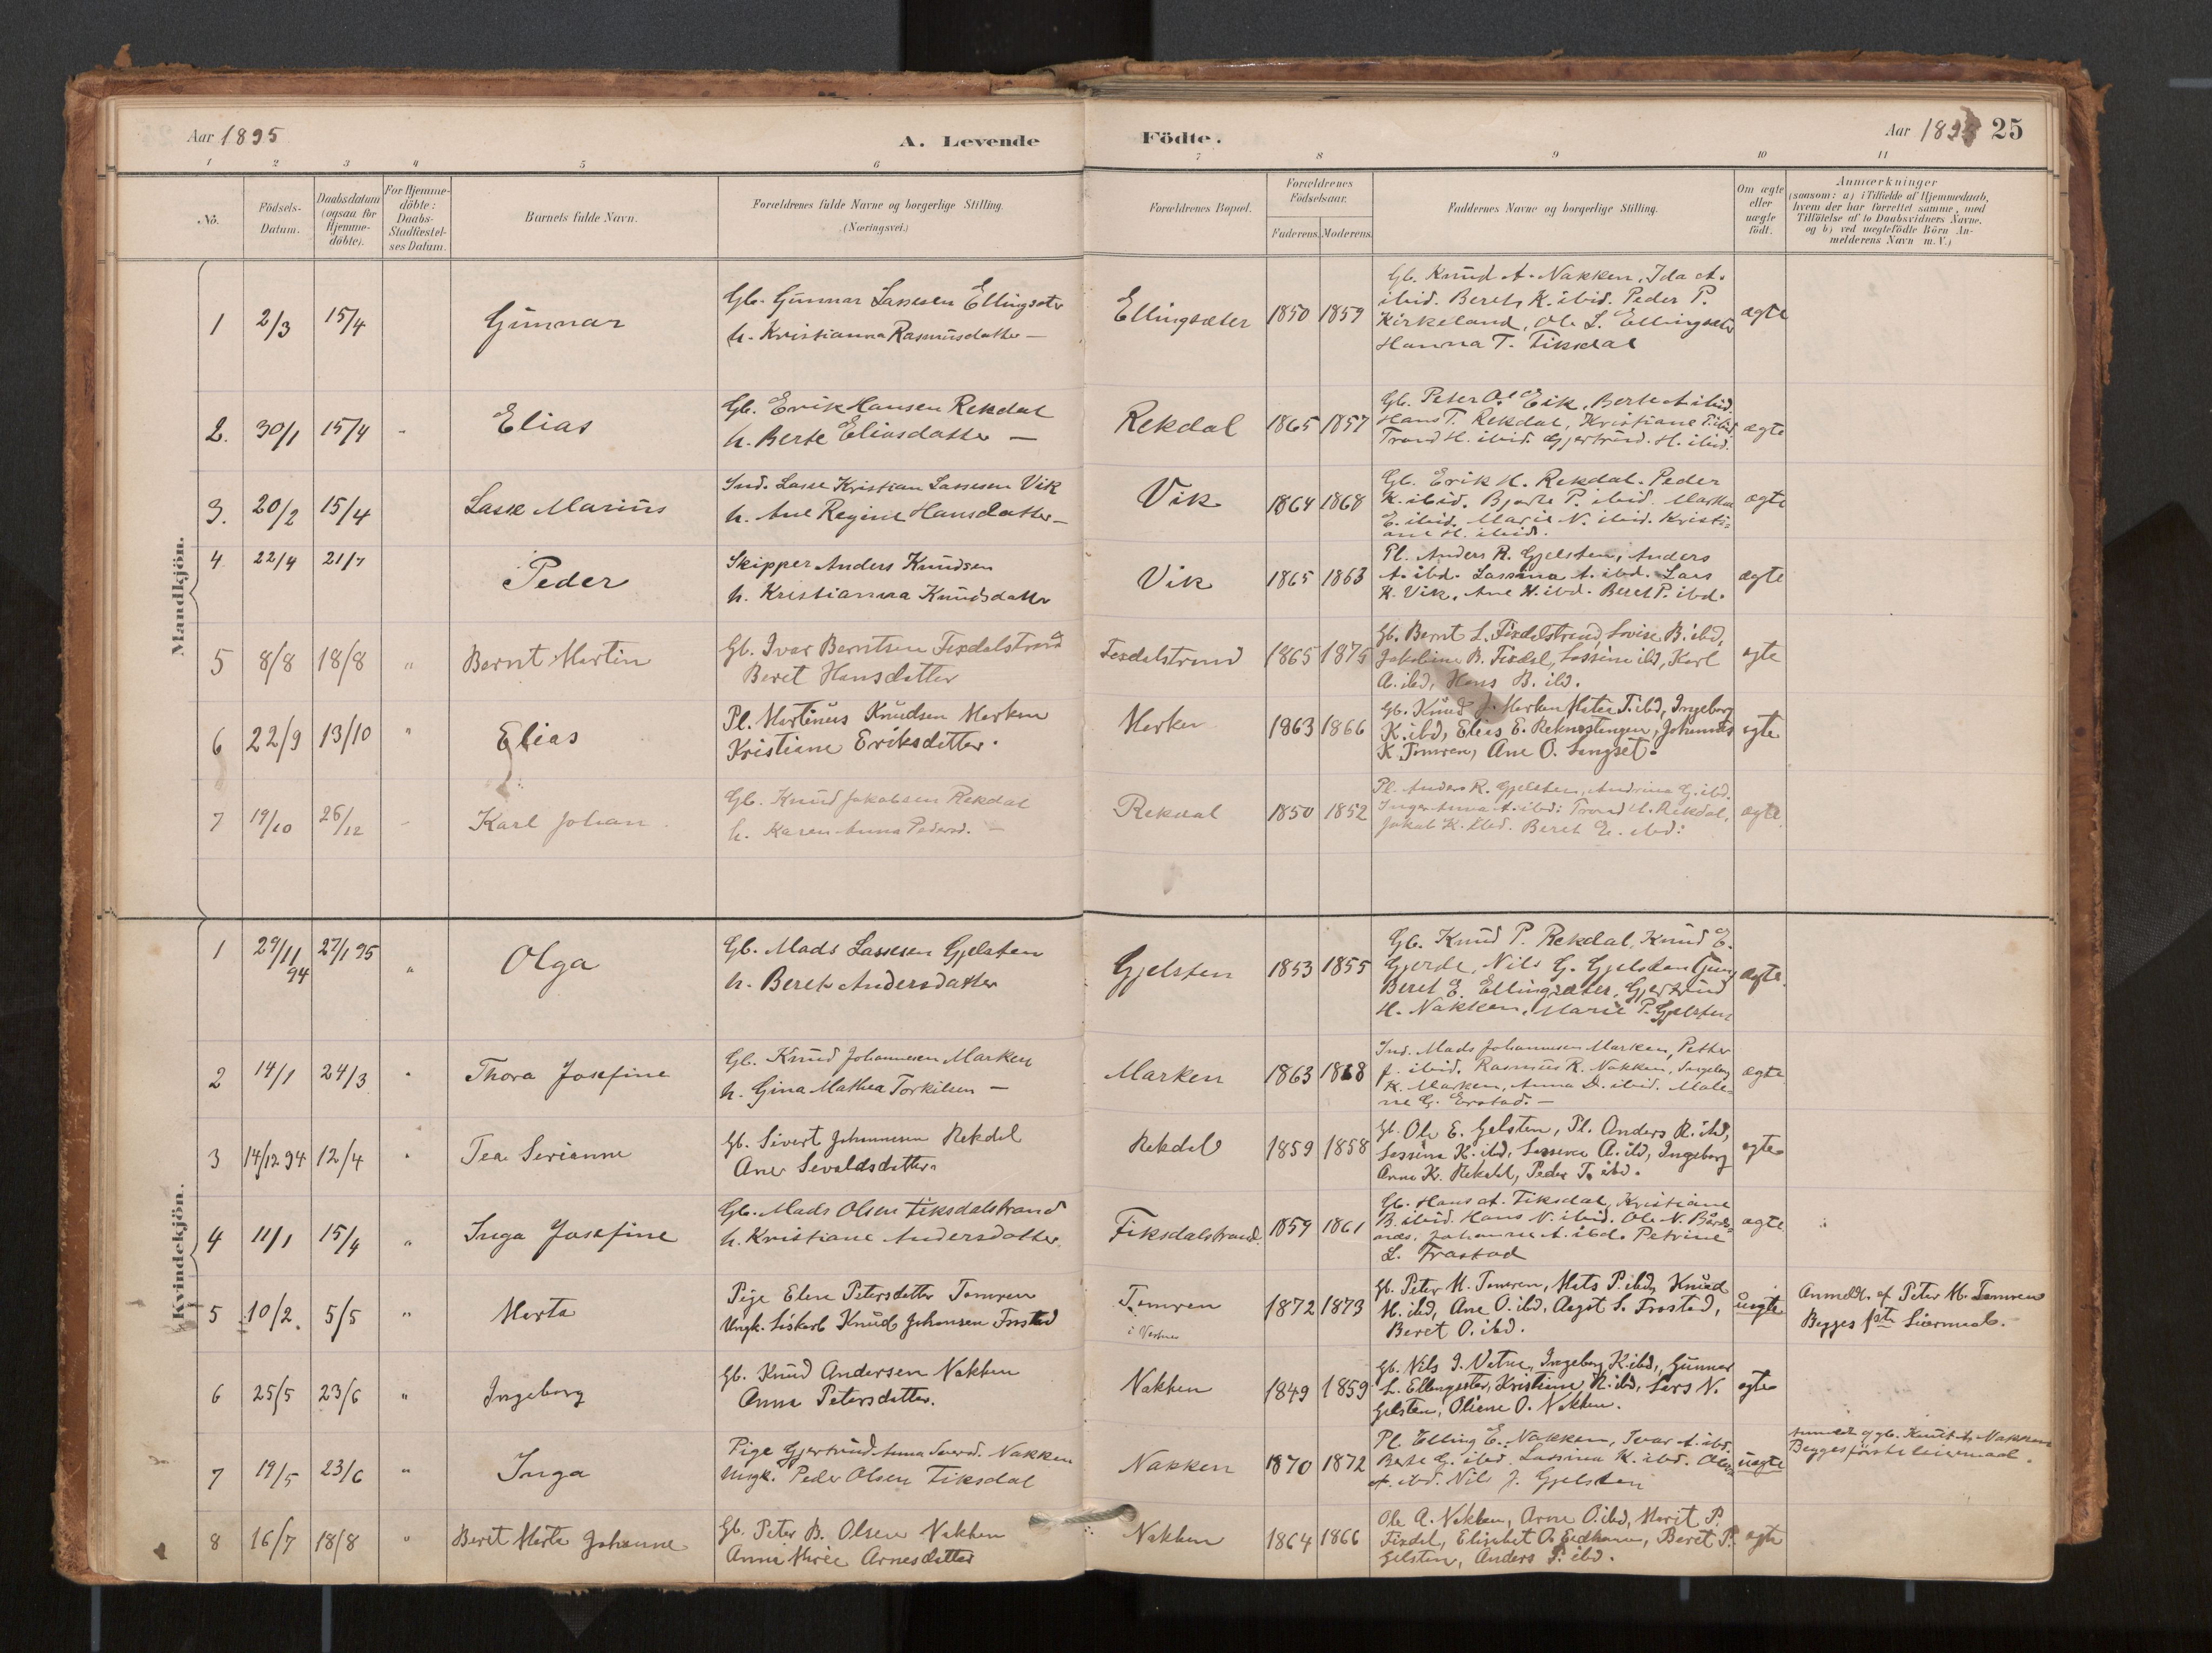 Aar 1895 A. Levende Födte. Aar 1895 25
1 2 3 4 5 6 7 8 9 10 11
No.
Födsels-
Datum.
Daabsdatum
(ogsaa for
Hjemme-
döbte).
For Hjemme-
döbte:
Daabs-
Stadfæstel-
ses Datum.
Barnets fulde Navn.
Forældrenes fulde Navne og borgerlige Stilling.
(Næringsvei.)
Forældrenes Bopæl.
Forældrenes
Födselsaar.
Faderens. Moderens.
Faddernes Navne og borgerlige Stilling.
Om ægte
eller
uægte
födt.
Anmærkninger
(saasom: a) i Tilfælde af Hjemmedaab,
hvem der har forrettet samme, med
Tilföielse af to Daabsvidners Navne.
og b) ved uægtefödte Börn An-
melderens Navn m. V.)
Mandkjön.
1 2/3 15/4 Gunnar
Gb. Gunnar Lassesen Ellingsæter
h. Kristianna Rasmusdatter —
Ellingsæter 1850 1859
Gb. Knud A. Nakken, Ida A.
ibid. Beret K. ibid. Peder P.
Kirkeland, Ole L. Ellingsæter
Hanna T. Fiksdal
ægte
2. 30/1 15/4 - Elias
Gb. Erik Hansen Rekdal
h. Berte Eliasdatter —
Rekdal 1865 1857
Gb. Peter O. Eik, Berte A. ibid.
Hans T. Rekdal, Kristiane T. ibid.
Trond H. ibid. Gjertrud H. ibid.
ægte
3. 20/2 15/4 Lasse Marius
Ind. Lasse Kristian Lassesen Vik
h. Ane Regine Hansdatter —
Vik 1864 1868
Gb. Erik H. Rekdal. Peder
K. ibid. Berte P. ibid. Martha
E. ibid. Marie N. ibid. Kristi-
ane H. ibid.
ægte
4 22/4 21/7 Peder
Skipper Anders Knudsen
h. Kristianna Knudsdatter
Vik 1865 1863
Pl. Anders R. Gjelsten, Anders
A. ibd. Lassina A. ibd. Lars
K. Vik, Ane H. ibd. Beret P. ibd.
ægte
5 8/8 18/8 " Bernt Martin
Gb. Ivar Berntsen Fixdalstrand
Beret Hansdatter
Fixdalstrand 1865 1875
Gb. Bernt L. Fixdalstrand, Lovise B. ibd,
Jakobine B. Fixdal, Lassine ibd, Karl
A. ibd, Hans B. ibd.
ægte
6 22/9 13/10 " Elias
Pl. Martinus Knudsen Marken
Kristiane Eriksdatter.
Marken 1863 1866
Gb. Knud J. Marken, Mette T. ibd, Ingeborg
K. ibd, Elias E. Reknestangen, Johannes
K. Tomren, Ane O. Langset.
ægte
7 19/10 26/12 - Karl Johan
Gb. Knud Jakobsen Rekdal
h. Karen Anna Pedersd. —
Rekdal 1850 1852
Pl. Anders R. Gjelsten, Andrina G. ibd.
Inger Anna A. ibd: Trond H. Rekdal,
Jakob K. ibd. Beret E. ibd:
ægte
Kvindekjön.
1 29/11 94 27/1 95 " Olga
Gb. Mads Lassesen Gjelsten
h. Beret Andersdatter
Gjelsten 1853 1855
Gb. Knud P. Rekdal, Knud E.
Gjerde, Nils G. Gjelsten
Beret E. Ellingsæter, Gjertrud
H. Nakken, Marie P. Gjelsten
ægte.
2 14/1 24/3 " Thora Josefine
Gb. Knud Johannesen Marken
h. Gina Mathea Torkilsen —
Marken 1863 1868
Ind. Mads Johannesen Marken, Petter
J. ibid. Rasmus R. Nakken, Ingeborg
K. Marken, Anna D. ibid. Male-
ne G.
ægte
3 14/12 94 12/4 " Tea Serianne
Gb. Sivert Johannesen Rekdal
Ane Sevaldsdatter.
Rekdal 1859 1858
Gb. Ole E. Gelsten, Pl. Anders R. ibd,
Lassine K. ibd, Lassine A. ibd, Ingeborg
Anna K. Rekdal, Peder T. ibd.
ægte
4 11/1 15/4 " Inga Josefine
Gb. Mads Olsen Fiksdalstrand
h. Kristiane Andersdatter.
Fiksdalstrand. 1859 1861
Gb. Hans A. Fiksdal, Kristiane
B. ibid. Hans N. ibid. Ole N.
Johanne A. ibd. Petrine
L. Frostad
ægte "
5 10/2. 5/5 " Marta
Pige Elen Petersdatter Tomren
Ungk. Knud Johansen Frostad
Tomren
i Vestnes
1872 1873
Gb. Peter M. Tomren, Mats P. ibd, Knud
M. ibd, Ane O. ibd, Aagot S. Frostad,
Beret O. ibd.
uægte
Anmeldt af Peter M. Tomren
Begges 1ste Leiermaal.
6 25/5 23/6 " Ingeborg
Gb. Knud Andersen Nakken
Anna Petersdatter.
Nakken 1849 1859
Gb. Nils J. Vatne, Ingeborg K. ibd, Gunnar
L. Ellingsæter, Kristianne R. ibd, Lars N.
Gelsten, Oliane O. Nakken.
ægte
7 19/5 23/6 " Inga
Pige Gjertrud Anna Iversd. Nakken
Ungk. Peder Olsen Fiksdal
Nakken 1870 1872
Pl. Elling E. Nakken, Ivar A. ibd.
Berte G. ibid. Lassina K. ibd.
A. ibd. Nils J. Gjelsten
uægte
Anmeldt af gb. Knud A. Nakken
Begges förste leiermaal.
8 16/7 18/8 " Beret Marta Johanne
Gb. Peter B. Olsen Nakken
Anne Marie Arnesdatter
Nakken 1864 1866
Ole A. Nakken, Arne O. ibd, Marit P.
Fixdal, Elisabet O. Eidhamn, Beret P.
Gelsten, Anders P. ibd.
ægte